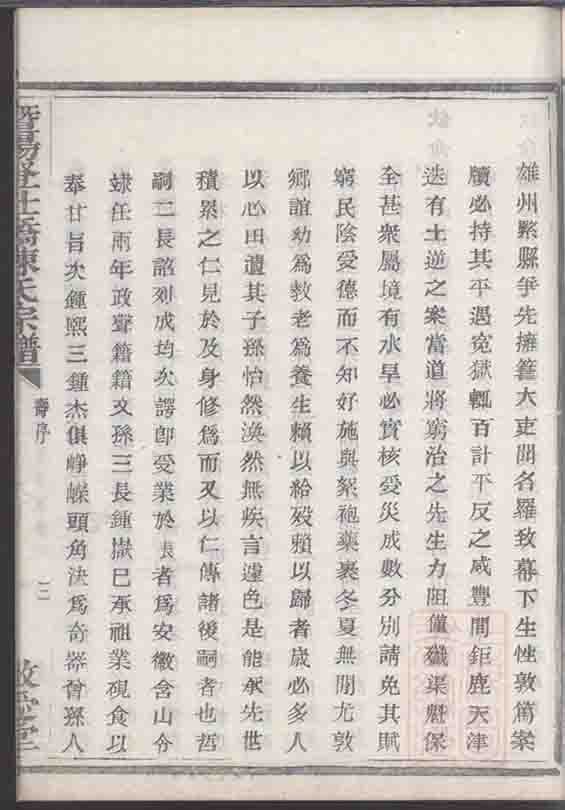 雄州緊縣爭先擁篲大吏聞名羅致幕下生性敦篤案
牘必持其平遇冤獄輒百計平反之咸豐間鉅鹿天津
迭有土逆之案當道將窮治之先生力阻僅殲渠魁保
全甚衆屬境有水旱必實核受災成數分別請免其賦
窮民陰受德而不知好施與絮袍藥裹冬夏無閒尤敦
鄉誼幼爲教老爲養生賴以給歿賴以歸者歲必多人
以心田遺其子孫怡然渙然無疾言遽色是能承先世
積累之仁見於及身修爲而又以仁傳諸後嗣者也哲
嗣二長詒刘成均次諤卽受業於 者爲安徽含山令
竦任兩年政聲籍籍文孫三長鍾嶽巳承祖業硯食以
奉甘旨次鍾熙三鍾杰俱崢嶸頭角決爲奇器曾孫人
暨陽 橋陳氏宗譜
壽序
三